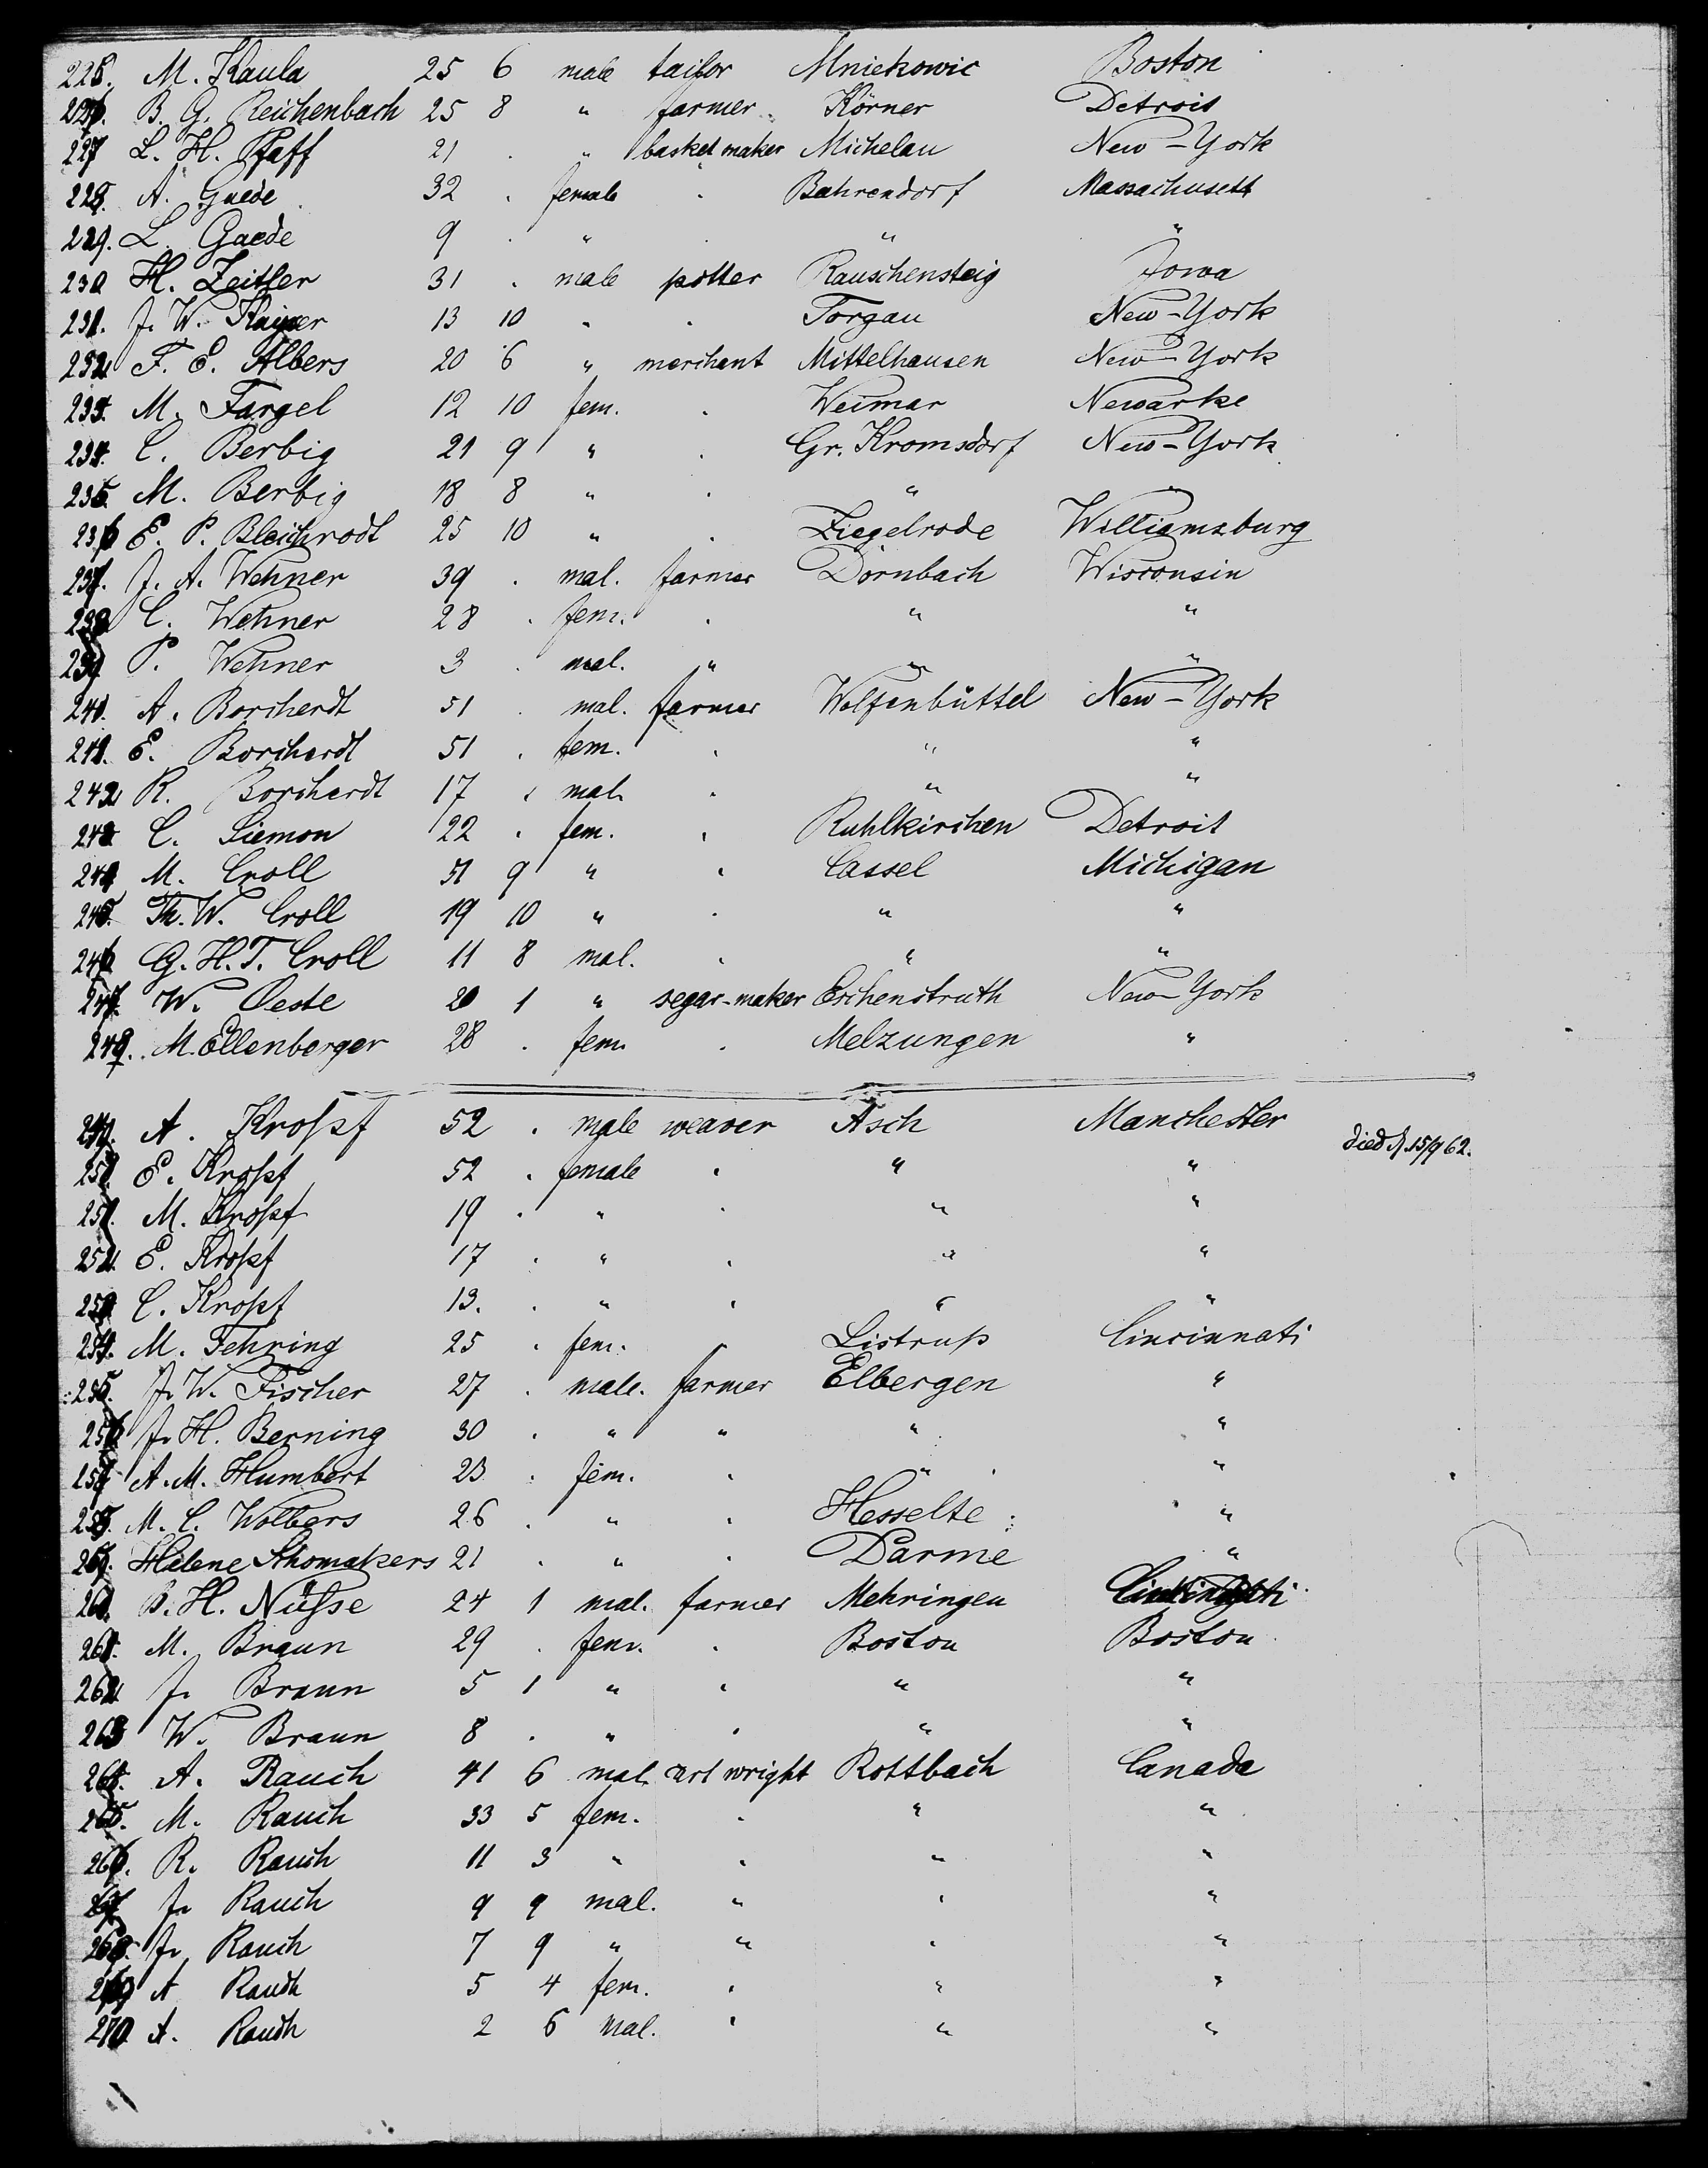 225. M. Kaula 25 6 male tailor Mniekowic Boston
226. B. G. Reichenbach 25 8 " farmer Körner Detroit
227 L. H. Pfaff 21 . " basket maker Michelau New-York
228. A. Gaede 32 . female . Bahrendorf Massachusett
229. L. Gaede 9 . " . " "
230 H. Zeitler 31 . male potter Rauschensteig Jowa
231. J. W. Kayser 13 10 " . Torgau New-York
232 F. E. Albers 20 6 " merchant Mittelhausen New-York
233. M. Fargel 12 10 fem. . Weimar Newarke
234. C. Berbig 21 9 " . Gr. Kromsdorf New-York
235. M. Berbig 18 8 " . " "
236 E. P. Bleichrodt 25 10 " . Ziegelrode Williamsburg
237. J. A. Wehner 39 . mal. farmer Dörnbach Wisconsin
238 C. Wehner 28 . fem. . " "
239 P. Wehner 3 . mal. " " "
240. A. Borcherdt 51 . mal. farmer Wolfenbüttel New-York
241. E. Borcherdt 51 . fem. . " "
242 R. Borcherdt 17 . mal. . " "
243 C. Siemon 22 . fem. . Ruhlkirchen Detroit
244 M. Croll 51 9 " . Cassel Michigan
245. Th. W. Croll 19 10 " . " "
246 G. H. T. Croll 11 8 mal. . " "
247. W. Oeste 20 1 " segar-maker Eschenstruth New-York
248. M. Ellenberger 28 . fem. . Melzungen "
249. A. Kropf 52 . male weaver Asch Manchester
250. E. Kropf 52 . female . " " died 15/9 62.
251. M. Kropf 19 . " . " "
252. E. Kropf 17 . " . " "
253. C. Kropf 13. . " . " "
254. M. Fehring 25 . fem. " Listrup Cincinnati
255. J. W. Fischer 27 . male. farmer Elbergen "
256 J. H. Berning 30 . " " " "
257 A. M. Humbert 23 . fem. . " "
258. M. C. Wolbers 26 . " . Hesselte "
259. Helene Schomakers 21 . " . Darme "
260. B. H. Nüsse 24 1 mal. farmer Mehringen Cincinnati
261. M. Braun 29 . fem. . Boston Boston
262 J. Braun 5 1 " . " "
263 W. Braun 8 . " . " "
264. A. Rauch 41 6 mal. art wright Rottbach Canada
265. M. Rauch 33 5 fem. . " "
266. R. Rauch 11 3 " . " "
267 J. Rauch 9 9 mal. " " "
268. J. Rauch 7 9 " " " "
269 A Rauch 5 4 fem. . " "
270 A. Rauch 2 6 mal. . " "